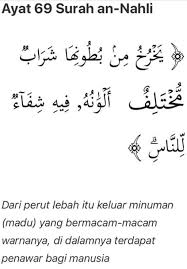 Ayat 69 Surah an-Nahli
﴿ يَخْرُجُ مِنۢ بُطُونِهَا شَرَابٌ
مُّخْتَلِفٌ أَلْوَٰنُهُۥ فِيهِ شِفَآءٌ
لِّلنَّاسِۗ ﴾
Dari perut lebah itu keluar minuman
(madu) yang bermacam-macam
warnanya, di dalamnya terdapat
penawar bagi manusia